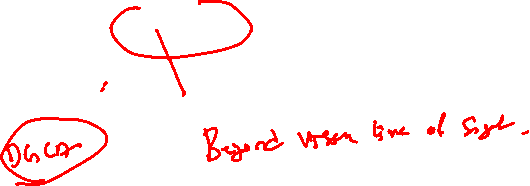 DGCA
Beyond visual line of sight.